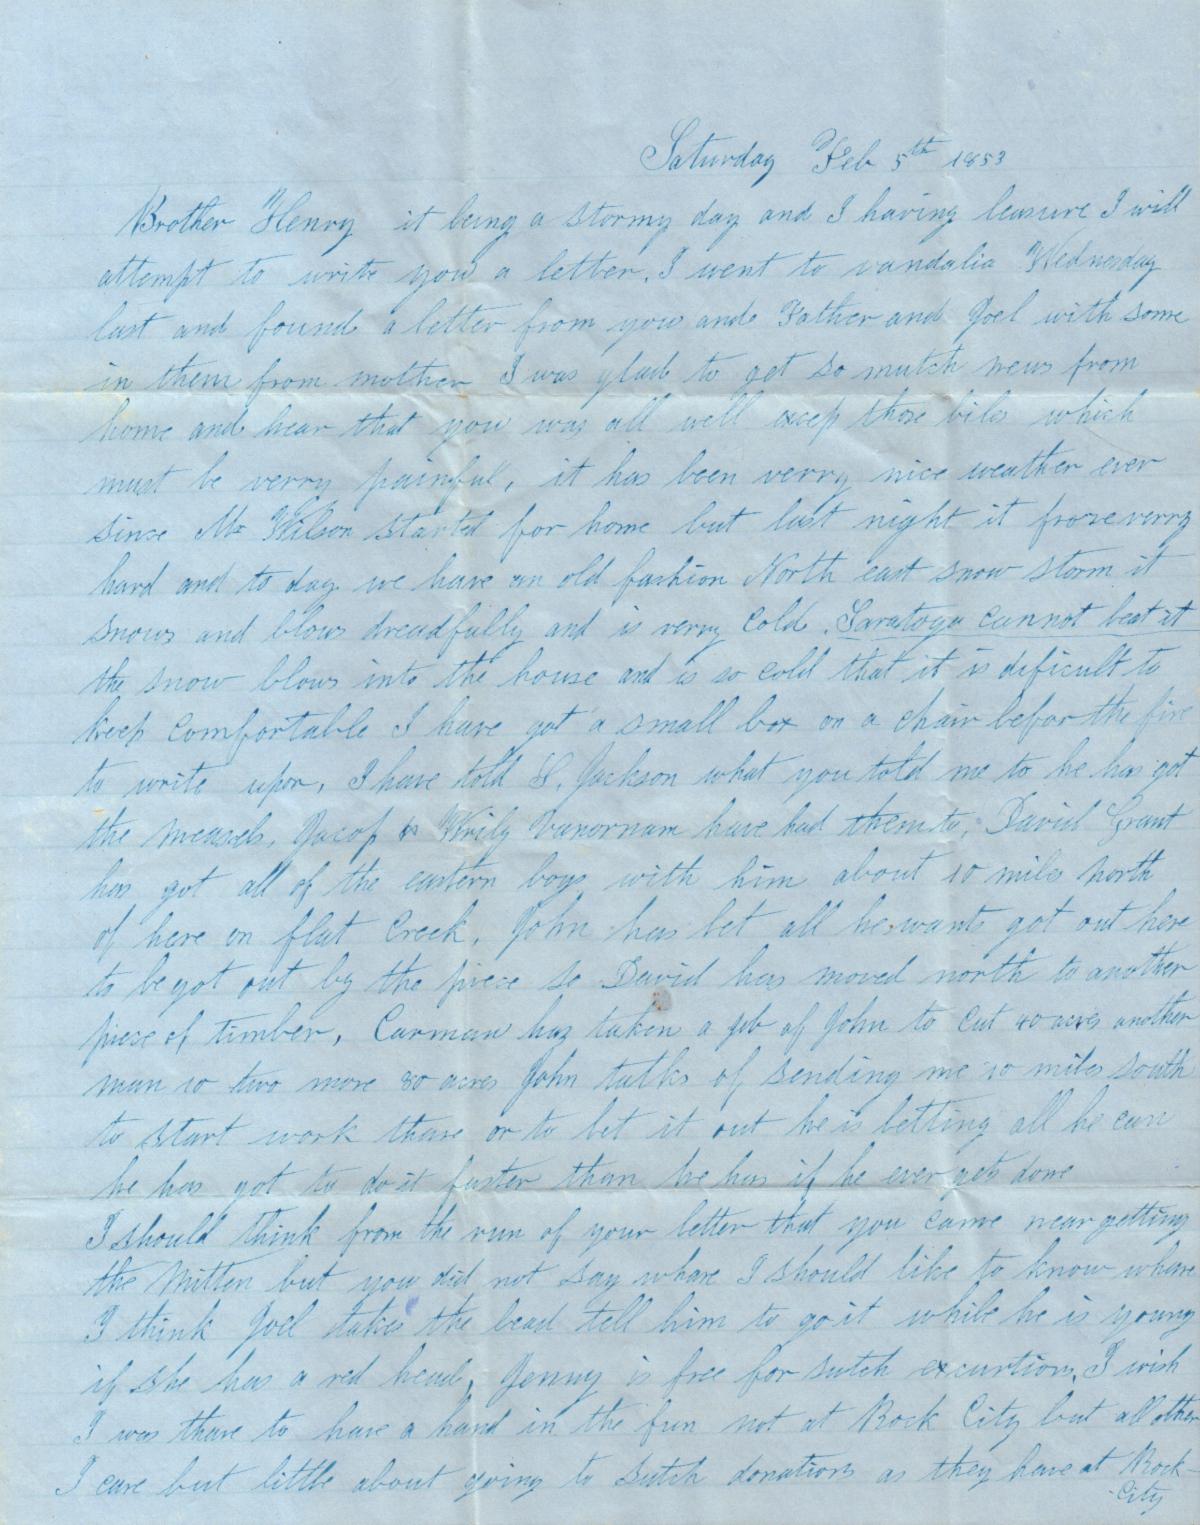 Saturday Feb 5th 1853
Brother Henry it being a stormy day and I having leasure I will
attempt to write you a letter. I went to vandalia Wednesday
last and found a letter from you and Father and Joel with some
in them from mother I was glad to get so mutch news from
home and hear that you was all well excep those biles which
must be verry painful, it has been verry nice weather ever
since Mr Wilson started for home but last night it froze verry
hard and to day we have an old fashion North east snow storm it
snows and blows dreadfully and is verry cold. Saratoga cannot beat it
the snow blows into the house and is so cold that it is dificult to
keep comfortable I have got a small box on a chair befor the fire
to write upon, I have told S. Jackson what you told me to he has got
the measels, Jacop & Vanornam have had them to, David Grant
has got all of the eastern boys with him about 10 miles north
of here on flat Creek, John has let all he wants got out here
to be got out by the piece so David has moved north to another
piece of timber, Carman haz taken a job of John to cut 40 acres another
man 10 two more 80 acres John talks of sending me 10 miles south
to start work thare or to let it out he is letting all he can
he has got to do it faster than he has if he ever gets done
I should think from the run of your letter that you came near getting
the Mitten but you did not say whare I should like to know whare
I think Joel takes the lead tell him to go it while he is young
if she has a red head, Jenny is free for sutch excurtions, I wish
I was thare to have a hand in the fun not at Rock City but all other
I care but little about going to sutch donations as they have at Rock-
City